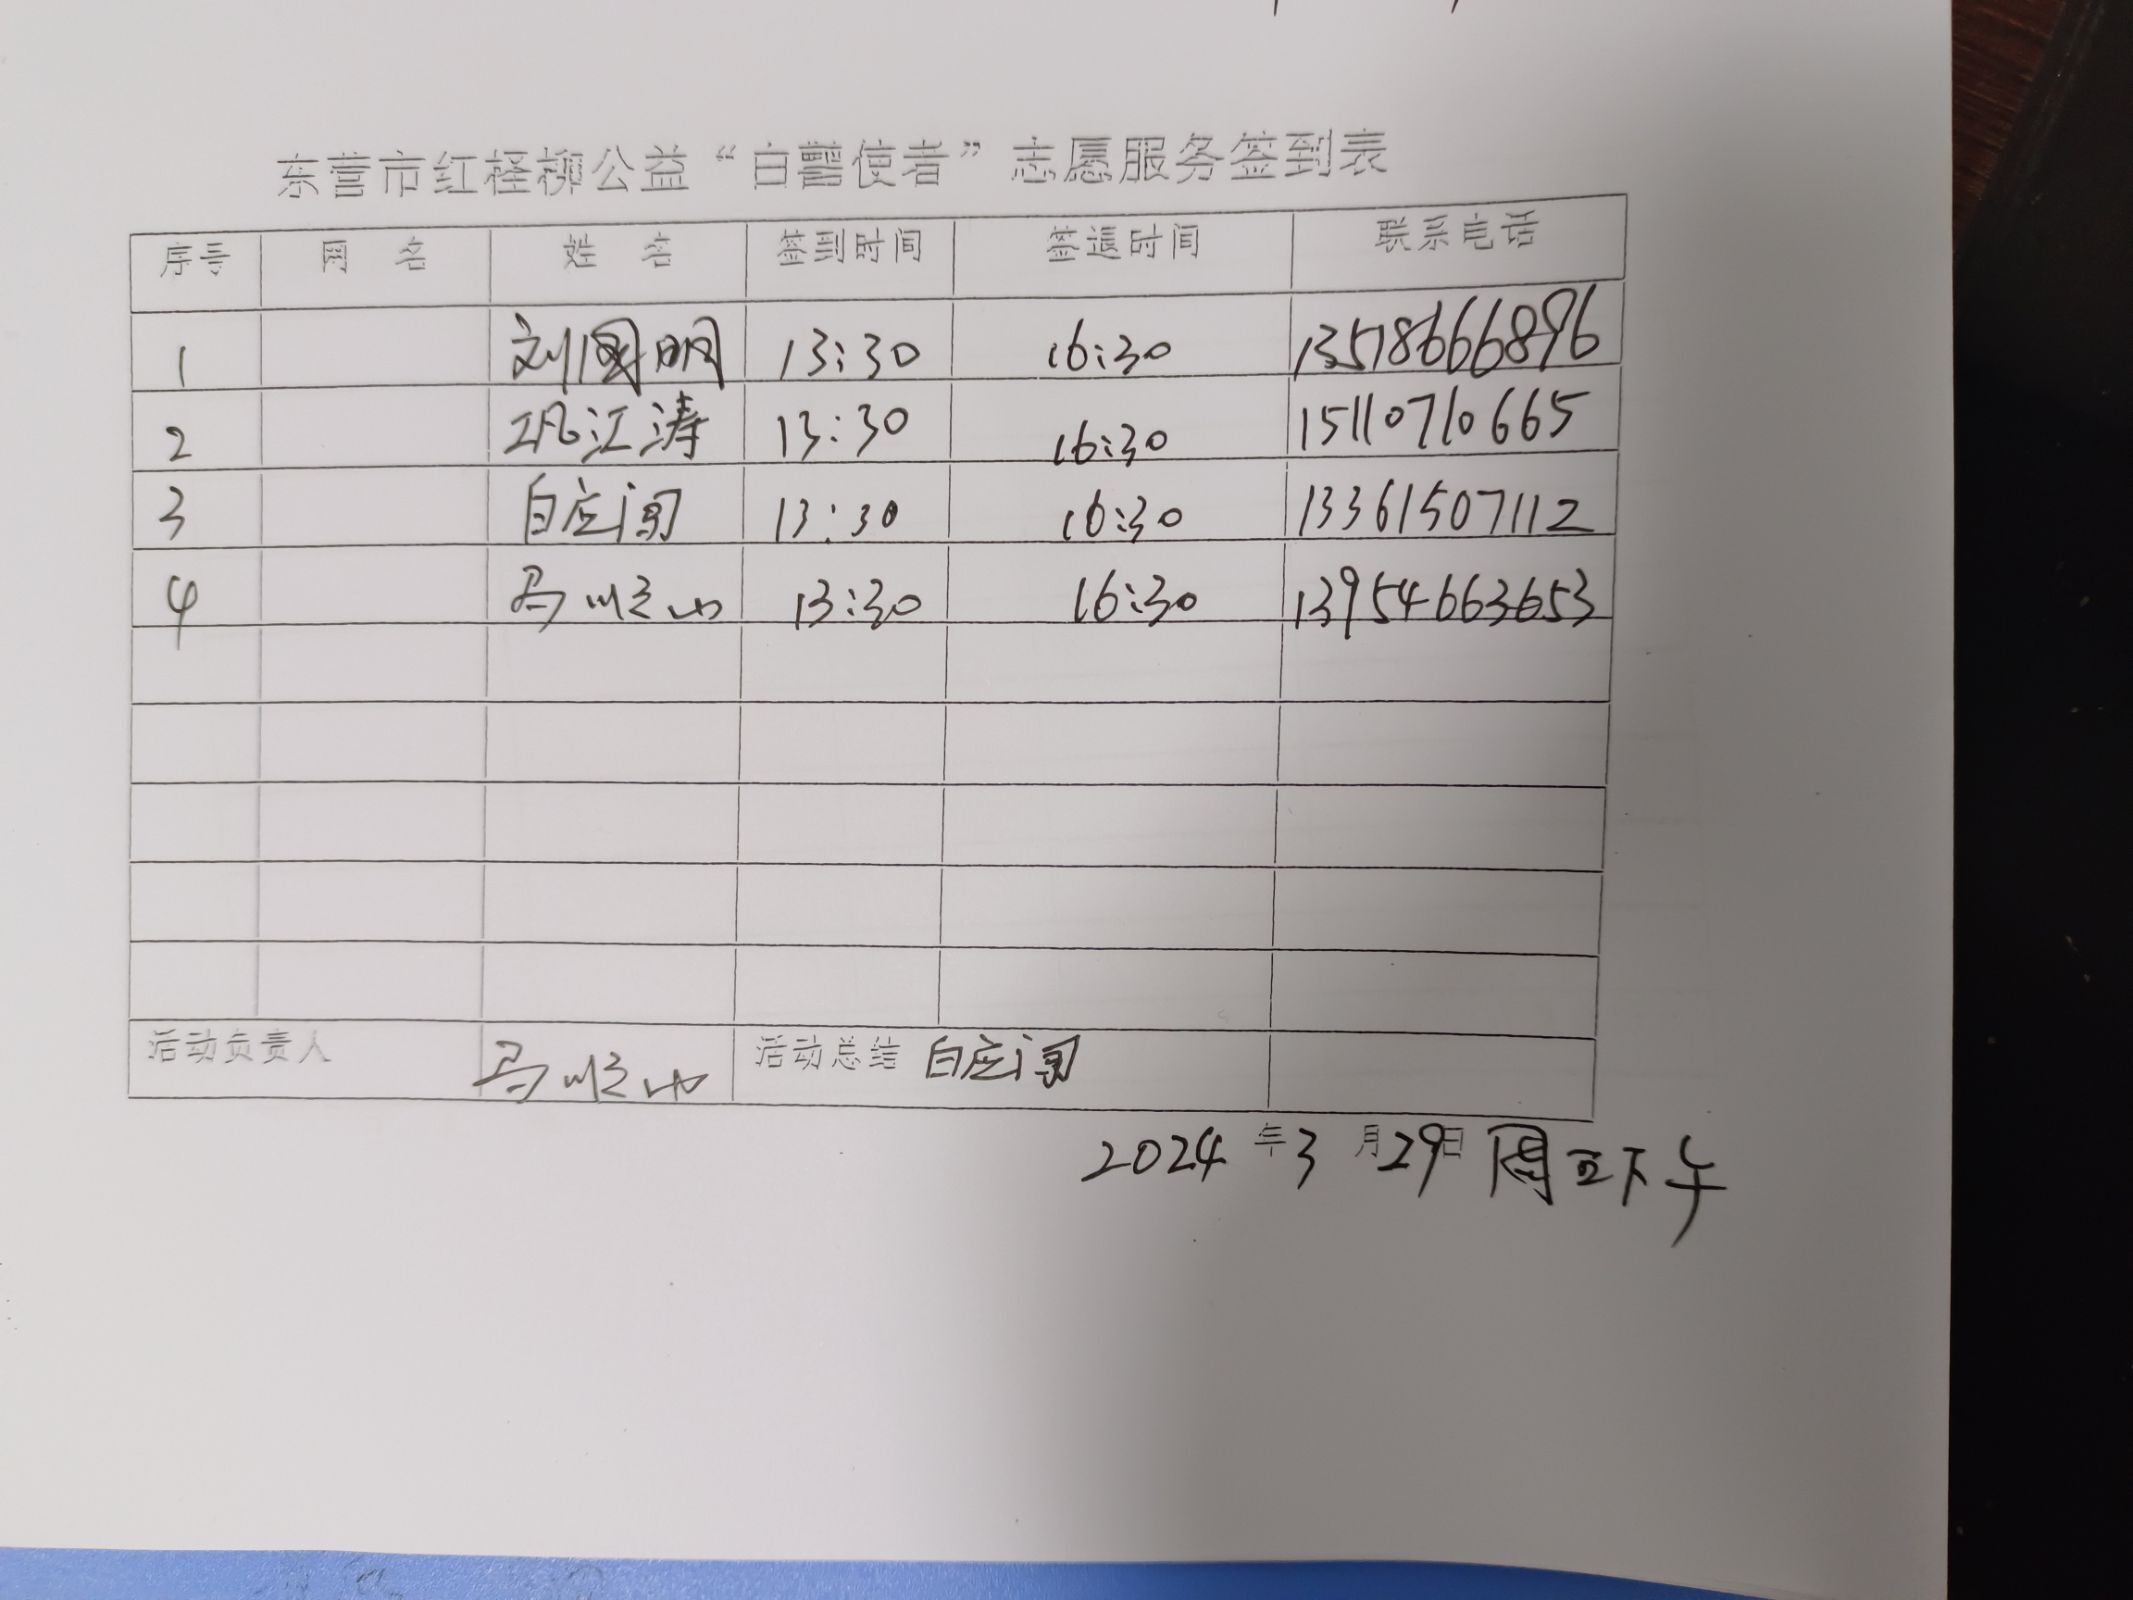 东营市红柽柳公益“白鹭使者”志愿服务签到表
序号 网 名 姓 名 签到时间 签退时间 联系电话
1 刘国明 13:30 16:30 13518666896
2 巩江涛 13:30 16:30 15110710665
3 白庄闯 13:30 16:30 13361507112
4 马 13:30 16:30 13954663653
活动负责人 马 活动总结 白庄闯
2024年3月29日 周五下午